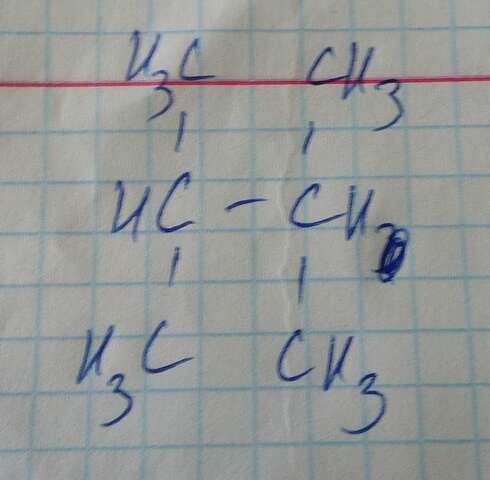 H₃C CH₃
| |
HC - CH
| |
H₃C CH₃